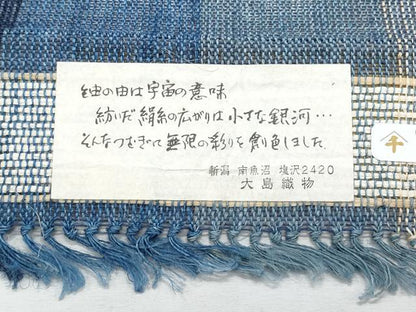 紬の由は宇宙の意味
紡いだ絹糸の広がりは小さな銀河…
そんなつむぎで無限の彩りを創色しました
新潟 南魚沼 塩沢2420
大島織物
千